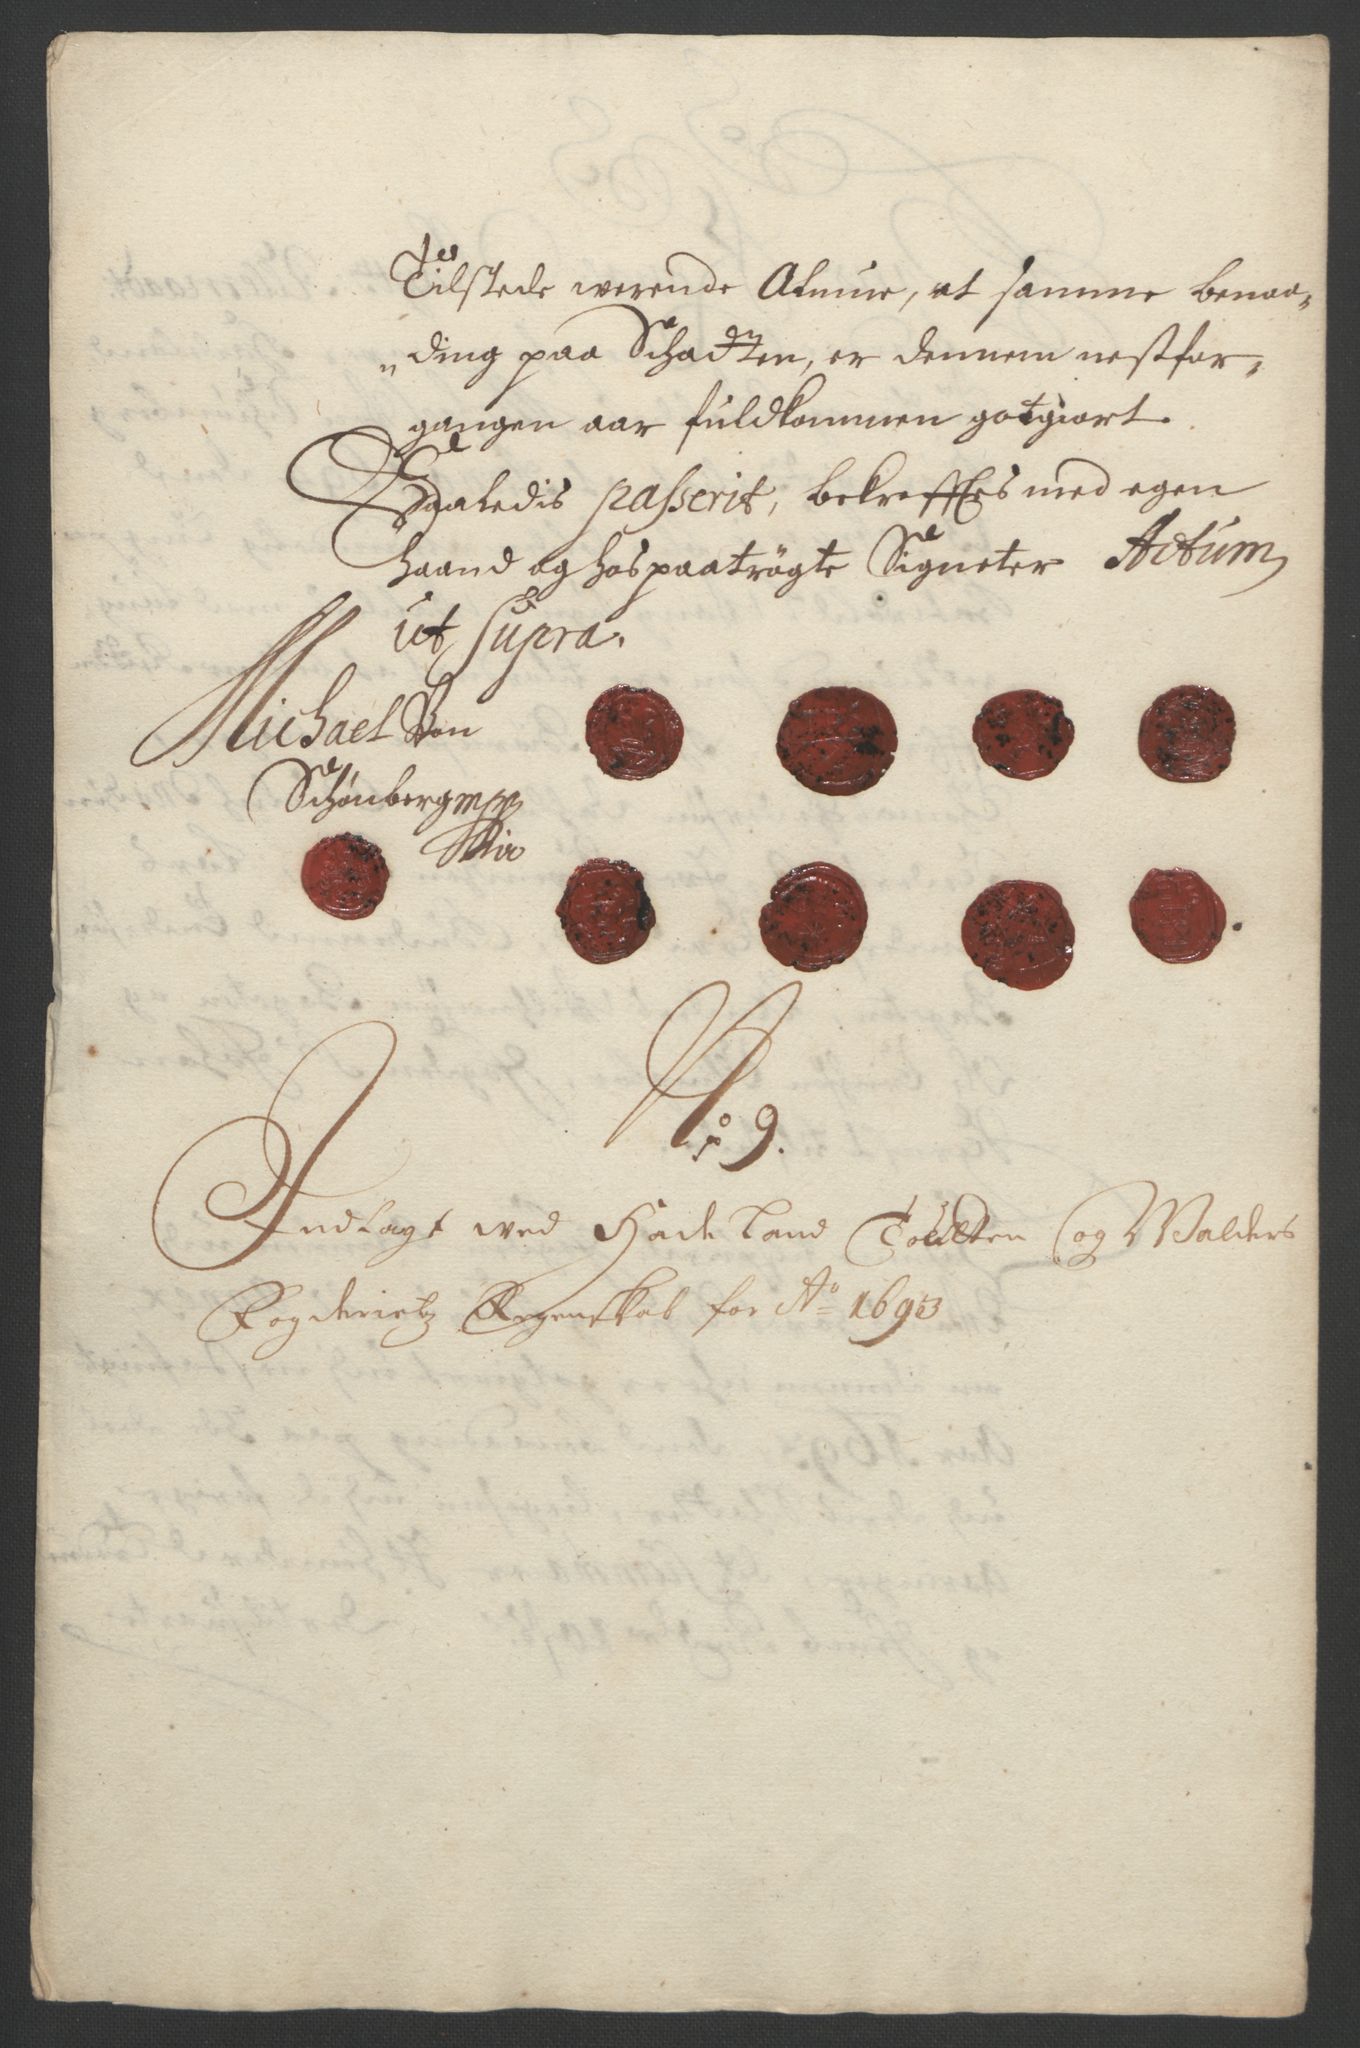 Tilstede werende Almue, at samme benaa-
ding paa Schadten, er dennem nestfor-
gangen aar fuldkommen gotgiort.
Saaledis passerit, bekrefftes med egen
haand og hos paatrögte Signeter Actum
ut Supra.
Michael Von
Schönberg mpp
No 9.
Indlagt wed Hadeland Toudten og Walders
Fogderietz Regenskab for Ao 1693